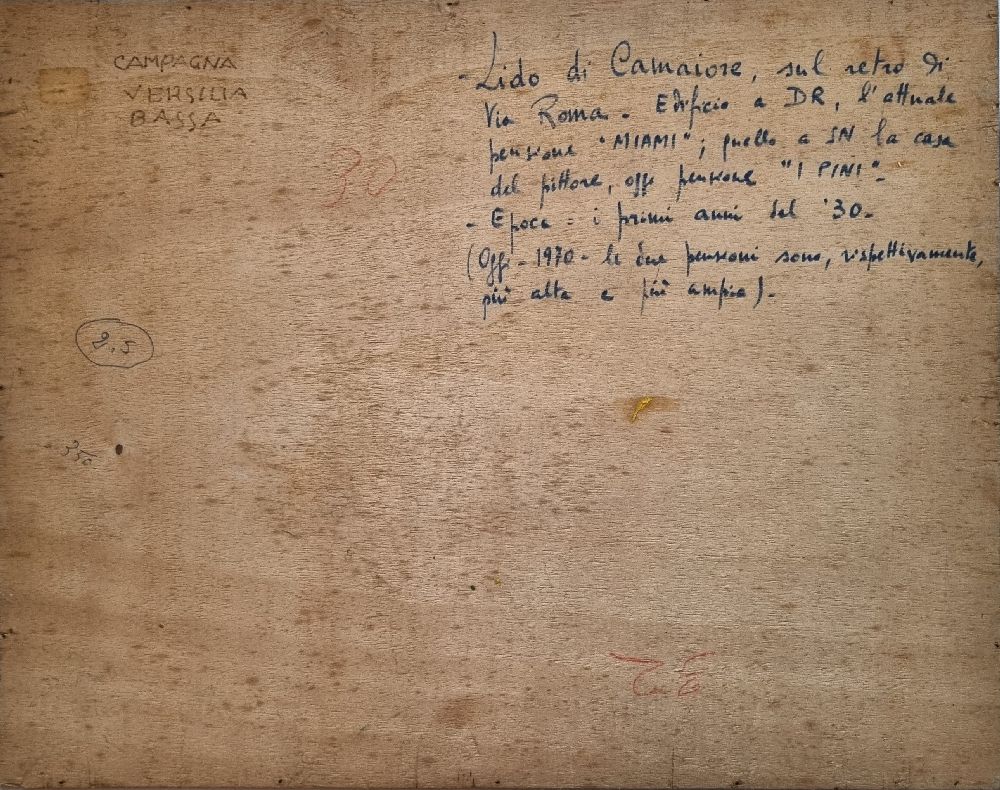 CAMPAGNA
VERSILIA
BASSA
- Lido di Camaiore, sul retro di
Via Roma. Edificio a DR, l'attuale
pensione "MIAMI"; quello a SN la casa
del pittore, oggi pensione "I PINI".
- Epoca = i primi anni del '30.
(Oggi - 1970 - le due pensioni sono, rispettivamente,
più alta e più ampia).
30
2.5
350